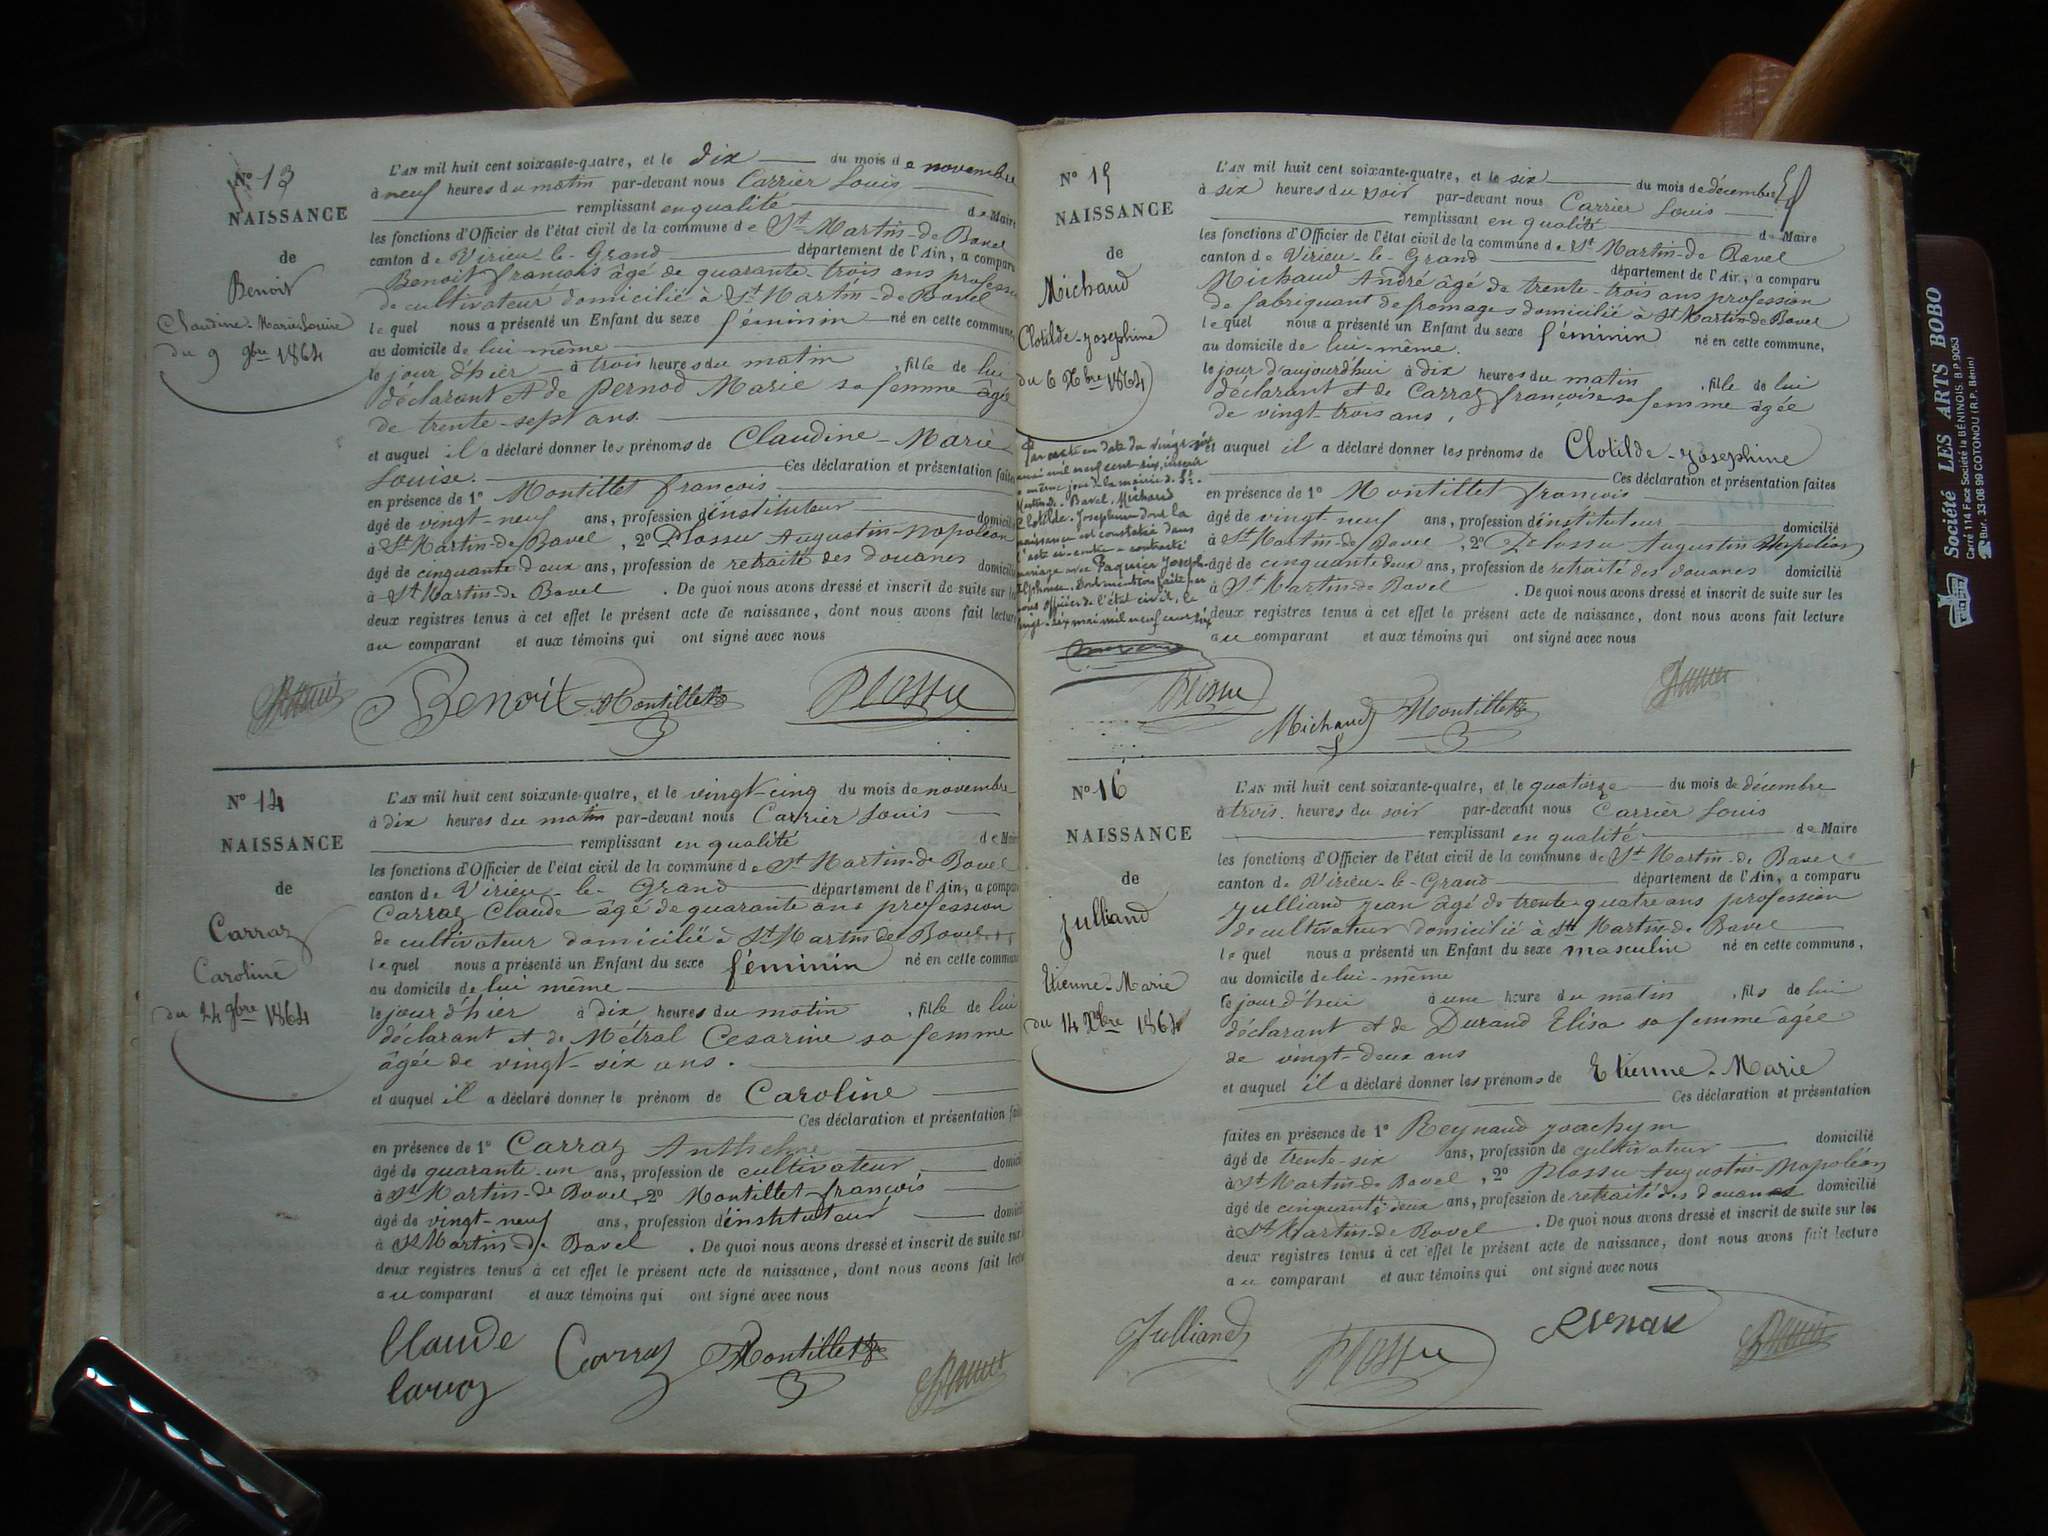 N° 13
NAISSANCE
de
Benoit
Claudine-Marie Louise
du 9 9bre 1864
L'AN mil huit cent soixante-quatre, et le dix du mois de novembre
à neuf heures du matin par-devant nous Carrier Louis
remplissant en qualité de Maire
les fonctions d'Officier de l'état civil de la commune de St Martin-de Bavel
canton de Virieu-le-Grand département de l'Ain, a comparu
Benoit françois âgé de quarante-trois ans profession
de cultivateur domicilié à St Martin-de Bavel
lequel nous a présenté un Enfant du sexe féminin né en cette commune,
au domicile de lui-même
le jour d'hier à trois heures du matin, fille de lui
déclarant et de Pernod Marie sa femme âgée
de trente-sept ans.
et auquel il a déclaré donner les prénoms de Claudine-Marie
Louise. Ces déclaration et présentation faites
en présence de 1° Montillet françois
âgé de vingt-neuf ans, profession d'instituteur domicilié
à St Martin-de Bavel, 2° Plossu Augustin-Napoléon
âgé de cinquante deux ans, profession de retraité des douanes domicilié
à St Martin-de Bavel. De quoi nous avons dressé et inscrit de suite sur les
deux registres tenus à cet effet le présent acte de naissance, dont nous avons fait lecture
au comparant et aux témoins qui ont signé avec nous
Benoit Montillet Plossu
N° 14
NAISSANCE
de
Carraz
Caroline
du 24 9bre 1864
L'AN mil huit cent soixante-quatre, et le vingt-cinq du mois de novembre
à dix heures du matin par-devant nous Carrier Louis
remplissant en qualité de Maire
les fonctions d'Officier de l'état civil de la commune de St Martin-de Bavel
canton de Virieu-le-Grand département de l'Ain, a comparu
Carraz Claude âgé de quarante ans profession
de cultivateur domicilié à St Martin de Bavel
lequel nous a présenté un Enfant du sexe féminin né en cette commune
au domicile de lui même
le jour d'hier à dix heures du matin, fille de lui
déclarant et de Métral Cesarine sa femme
âgée de vingt-six ans.
et auquel il a déclaré donner le prénom de Caroline
Ces déclaration et présentation faites
en présence de 1° Carraz Anthelme
âgé de quarante-un ans, profession de cultivateur, domicilié
à St Martin-de Bavel, 2° Montillet françois
âgé de vingt-neuf ans, profession d'instituteur domicilié
à St Martin-de Bavel. De quoi nous avons dressé et inscrit de suite sur les
deux registres tenus à cet effet le présent acte de naissance, dont nous avons fait lecture
au comparant et aux témoins qui ont signé avec nous
Claude Carraz Montillet
Carraz
N° 15
NAISSANCE
de
Michaud
Clotilde-Josephine
du 6 Xbre 1864
L'AN mil huit cent soixante-quatre, et le six du mois de décembre
à six heures du soir par-devant nous Carrier Louis
remplissant en qualité de Maire
les fonctions d'Officier de l'état civil de la commune de St Martin-de Bavel
canton de Virieu-le-Grand département de l'Ain, a comparu
Michaud André âgé de trente-trois ans profession
de fabriquant de fromages domicilié à St Martin-de Bavel
lequel nous a présenté un Enfant du sexe féminin né en cette commune,
au domicile de lui-même.
le jour d'aujourd'hui à dix heures du matin, fille de lui
déclarant et de Carraz françoise sa femme âgée
de vingt-trois ans,
et auquel il a déclaré donner les prénoms de Clotilde-Josephine
Ces déclaration et présentation faites
en présence de 1° Montillet françois
âgé de vingt-neuf ans, profession d'instituteur domicilié
à St Martin-de Bavel, 2° Plossu Augustin Napoléon
âgé de cinquante deux ans, profession de retraité des douanes domicilié
à St Martin-de Bavel. De quoi nous avons dressé et inscrit de suite sur les
deux registres tenus à cet effet le présent acte de naissance, dont nous avons fait lecture
au comparant et aux témoins qui ont signé avec nous
Par acte en date du vingt-six
mai mil neuf cent-six, inscrit
le même jour de la mairie de St-
Martin-de-Bavel, Michaud
Clotilde-Josephine dont la
naissance est constatée dans
l'acte ci-contre a contracté
mariage avec Paquier Joseph-
Alphonse. Dont mention faite par
nous officier de l'état civil, le
vingt-six mai mil neuf cent six
Plossu Michaud Montillet
N° 16
NAISSANCE
de
Julliand
Etienne-Marie
du 14 Xbre 1864
L'AN mil huit cent soixante-quatre, et le quatorze du mois de décembre
à trois heures du soir par-devant nous Carrier Louis
remplissant en qualité de Maire
les fonctions d'Officier de l'état civil de la commune de St Martin-de Bavel
canton de Virieu-le-Grand département de l'Ain, a comparu
Julliand Jean âgé de trente-quatre ans profession
de cultivateur domicilié à St Martin-de Bavel
lequel nous a présenté un Enfant du sexe masculin né en cette commune,
au domicile de lui-même
le jour d'hui à une heure du matin, fils de lui
déclarant et de Durand Elisa sa femme âgée
de vingt-deux ans
et auquel il a déclaré donner les prénoms de Etienne-Marie
Ces déclaration et présentation
faites en présence de 1° Reynaud Joachym
âgé de trente-six ans, profession de cultivateur domicilié
à St Martin-de Bavel, 2° Plossu Augustin-Napoléon
âgé de cinquante deux ans, profession de retraité des douanes domicilié
à St Martin-de Bavel. De quoi nous avons dressé et inscrit de suite sur les
deux registres tenus à cet effet le présent acte de naissance, dont nous avons fait lecture
au comparant et aux témoins qui ont signé avec nous
Julliand Plossu
Société LES ARTS BOBO
Carré 114 Face Société la BÉNINOIS. B.P. 9053
Bur. 33-08 99 COTONOU (R.P. Bénin)